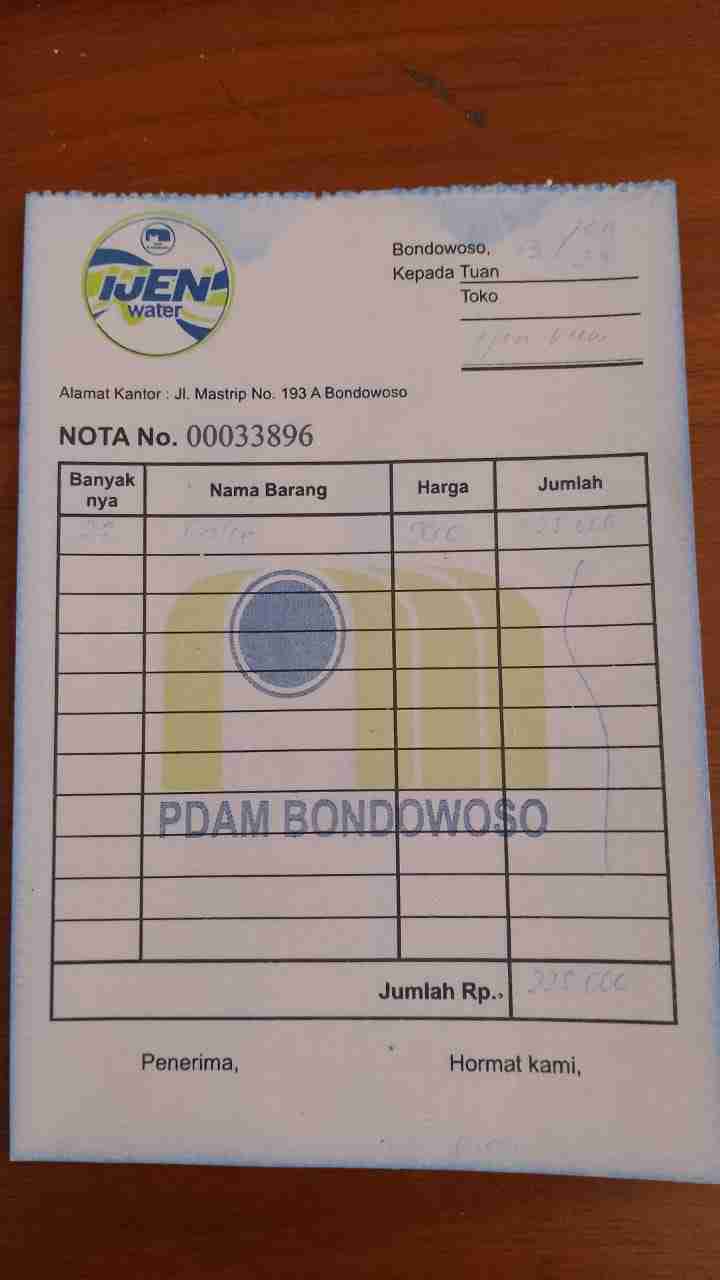 IJEN
water
Bondowoso,
Kepada Tuan
Toko
Alamat Kantor : Jl. Mastrip No. 193 A Bondowoso
NOTA No. 00033896
Banyak nya Nama Barang Harga Jumlah
PDAM BONDOWOSO
Jumlah Rp. 225 000
Penerima, Hormat kami,